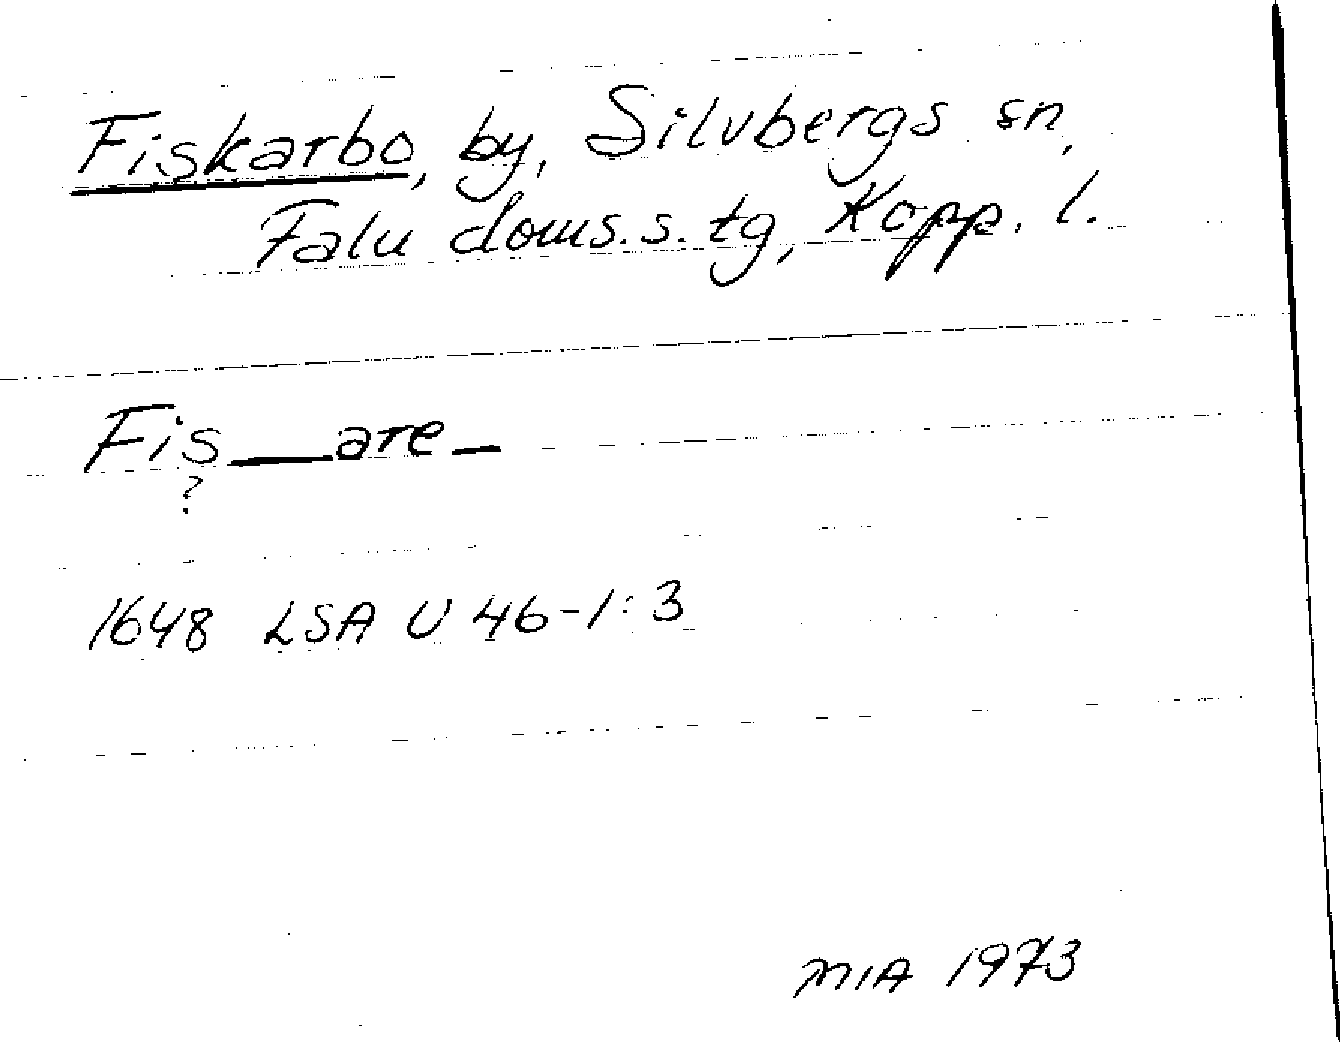 Fiskarbo, by, Silvbergs sn,
Falu doms.s. tg, Kopp. l.
Fis___are_
?
1648 LSA U 46-1:3
MIA 1973